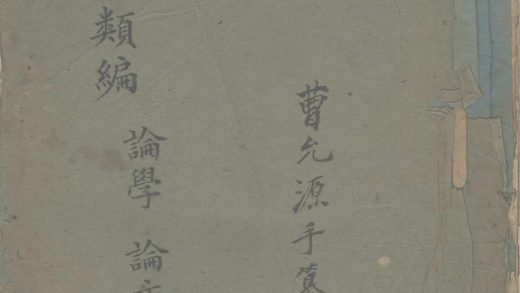 曹允源手
論學 論
類編